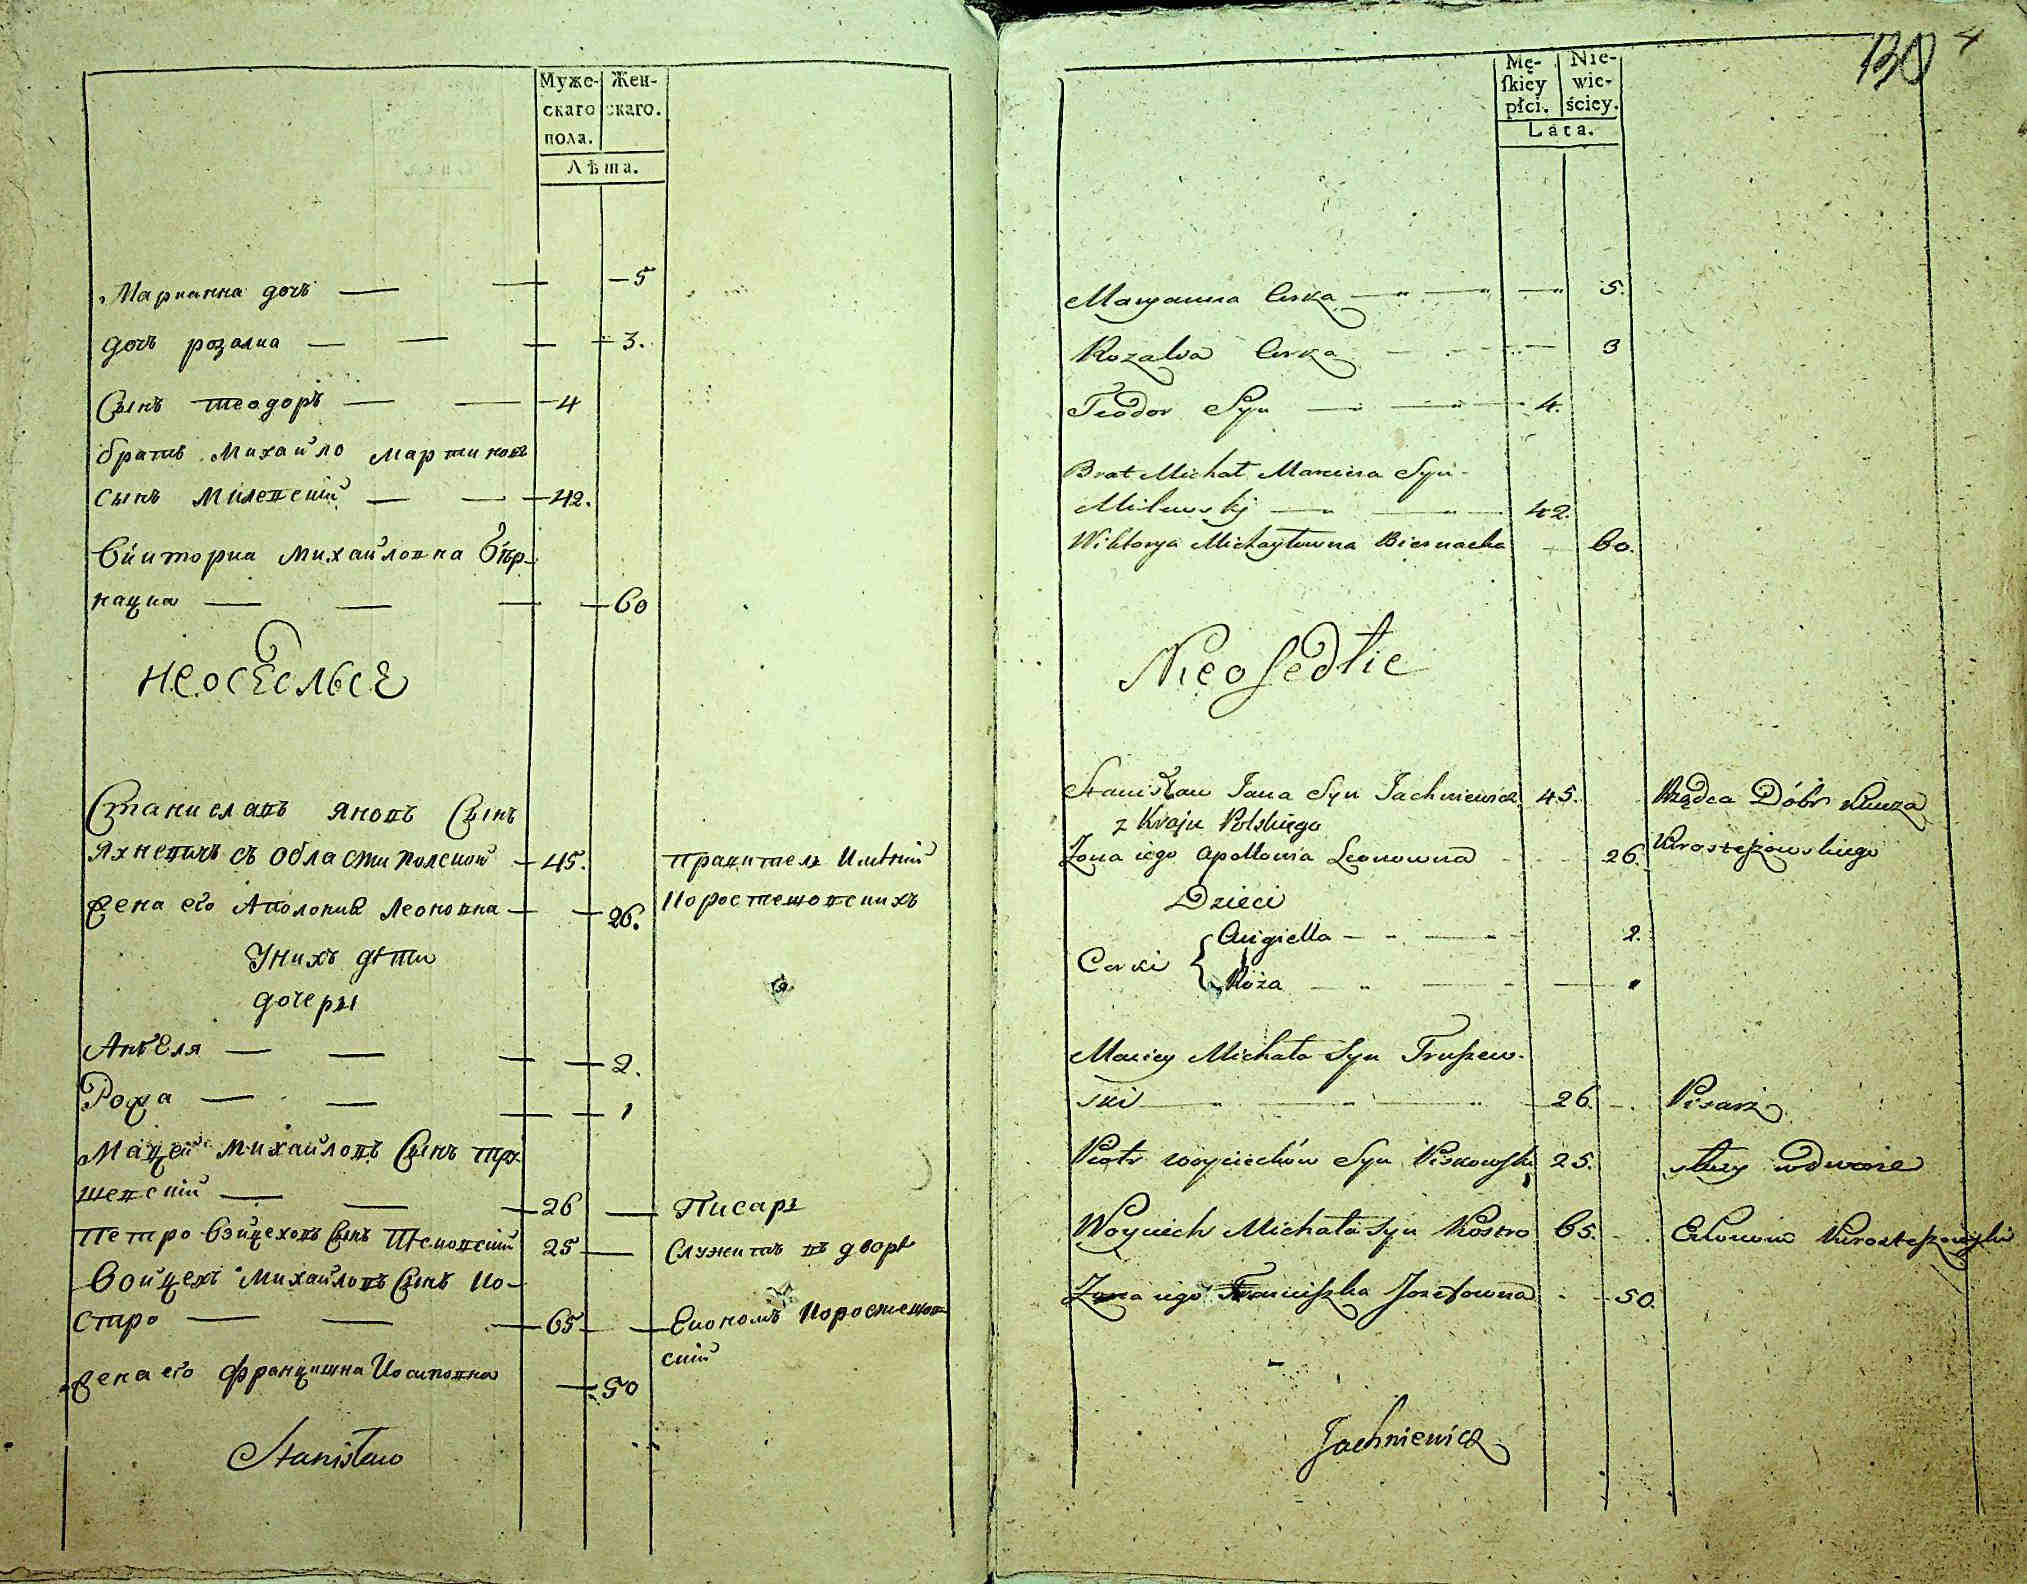 Муже- Жен-
скаго скаго.
пола.
Лѣта.
Марианна дочь — — — 5
дочь розалиа — — — 3.
Сынъ теодоръ — — 4
братъ Михайло мартиновъ
сынъ Милевскій — — 42.
Викториа Михайловна Бѣр-
нацка — — — 60
неосѣлые
Станиславъ Яновъ Сынъ
Яхневичъ съ Области Полской 45. правитель Имѣній
жена его Аполониа Леоновна 26. Коростешовскихъ
Унихъ дѣти
дочеры
Анѣеля — — — 2.
Рожа — — — 1
Мацей Михайловъ Сынъ тру-
шевскій — — 26 — Писарь
Петро Войцеховъ Сынъ 25 — Служитъ въ дворѣ
Войцехъ Михайловъ Сынъ Ко-
стро — — 65 — Економъ Коростешов-
скій
жена его Францишка Иосиповна — 50
Stanisław
130 4
Mę- Nie-
ſkiey wie-
płci. ściey.
Lata.
Maryanna Corka — — — 5.
Rozalia Corka — — — 3
Teodor Syn — — 4.
Brat Michał Marcina Syn
Milewski — — 42.
Wiktorya Michayłowna Biernacka — 60.
Nieoſedłie
Stanisław Jana Syn Jachniewicz 45. Rządca Dóbr Klucza
z Kraju Polskiego
Zona iego Apollonia Leonowna 26. Korosteszowskiego
Dzieci
Angiella — — 2.
Corki
Róża — — — 1
Maciey Michała Syn Truſzew-
ski — — — 26. — Pisarz
Piotr Woyciechów Syn Piskowski 25. słuzy wdworze
Woyciech Michała Syn Kostro 65. Ekonom Korosteszowski
Zona iego Franciſzka Jozefowna — 50.
Jachniewicz